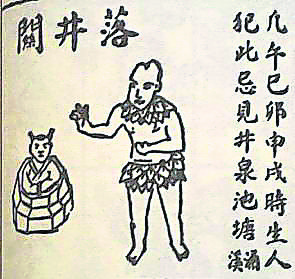 落井關
凢午巳卯申戌時生人
犯此忌見井泉池塘涌溪